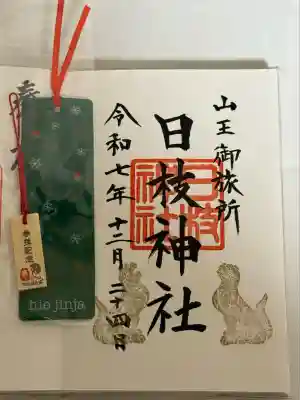 山王御旅所
日枝神社
日枝
神社
令和七年十二月二十四日
奉拝
参拝記念
hie jinja